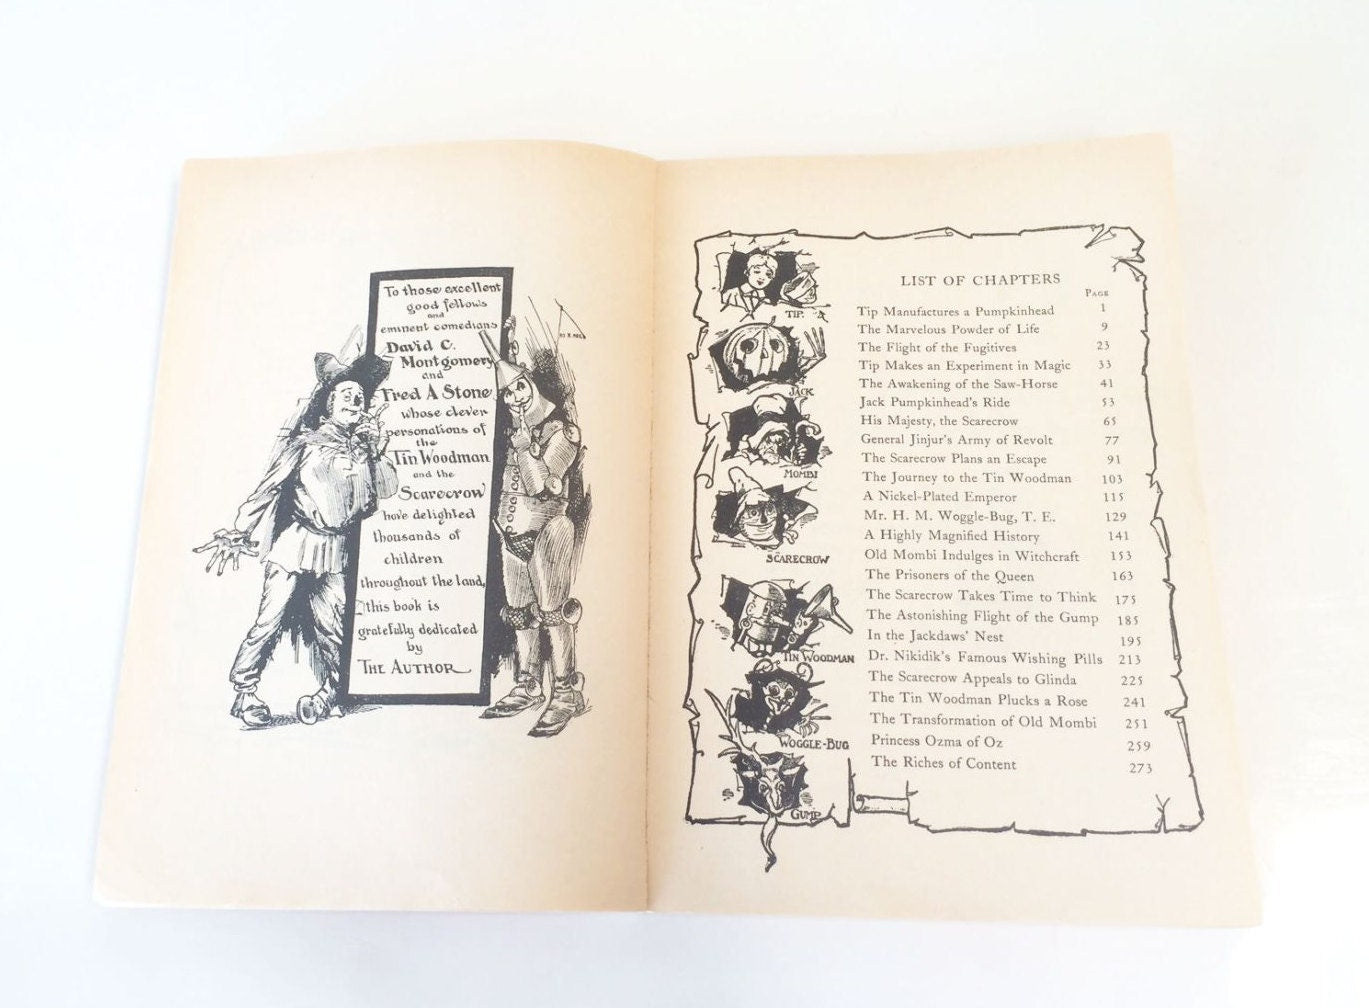 To those excellent
good fellows
and
eminent comedians
David C.
Montgomery
and
Fred A Stone
whose clever
personations of
the
Tin Woodman
and the
Scarecrow
have delighted
thousands of
children
throughout the land,
this book is
gratefully dedicated
by
THE AUTHOR
TIP.
JACK
MOMBI
SCARECROW
TIN WOODMAN
WOGGLE-BUG
GUMP
LIST OF CHAPTERS
PAGE
Tip Manufactures a Pumpkinhead 1
The Marvelous Powder of Life 9
The Flight of the Fugitives 23
Tip Makes an Experiment in Magic 33
The Awakening of the Saw-Horse 41
Jack Pumpkinhead's Ride 53
His Majesty, the Scarecrow 65
General Jinjur's Army of Revolt 77
The Scarecrow Plans an Escape 91
The Journey to the Tin Woodman 103
A Nickel-Plated Emperor 115
Mr. H. M. Woggle-Bug, T. E. 129
A Highly Magnified History 141
Old Mombi Indulges in Witchcraft 153
The Prisoners of the Queen 163
The Scarecrow Takes Time to Think 175
The Astonishing Flight of the Gump 185
In the Jackdaws' Nest 195
Dr. Nikidik's Famous Wishing Pills 213
The Scarecrow Appeals to Glinda 225
The Tin Woodman Plucks a Rose 241
The Transformation of Old Mombi 251
Princess Ozma of Oz 259
The Riches of Content 273